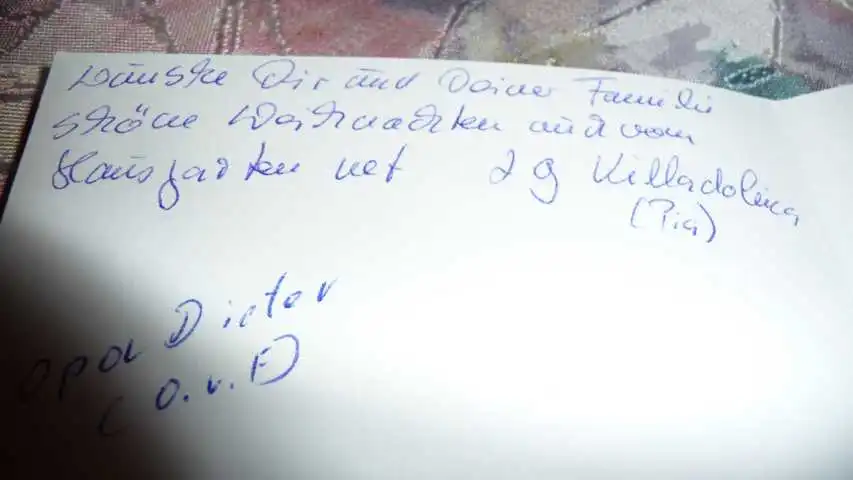 Wünsche Dir und Deiner Familie
schöne Weihnachten auch vom
Hausgarten net lg Killadolina
(Pia)
Opa Dieter
(O.v.F)